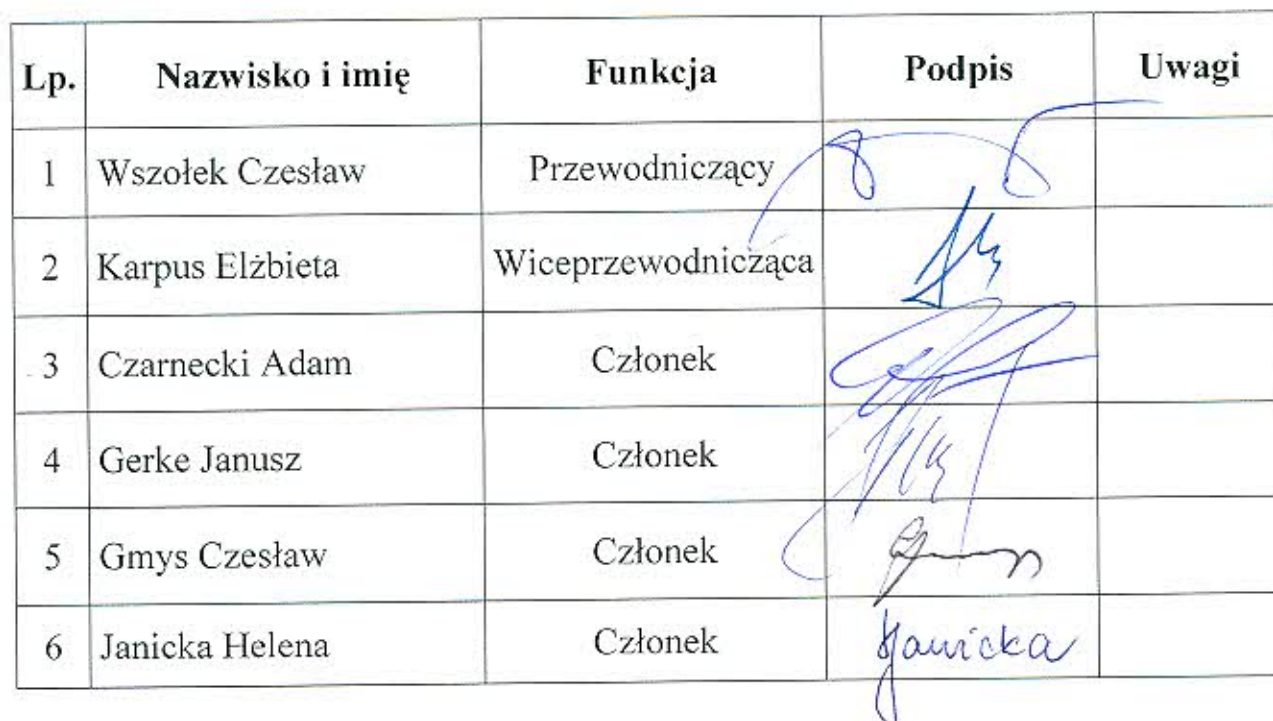 Lp. Nazwisko i imię Funkcja Podpis Uwagi
1 Wszołek Czesław Przewodniczący
2 Karpus Elżbieta Wiceprzewodnicząca
3 Czarnecki Adam Członek
4 Gerke Janusz Członek
5 Gmys Czesław Członek
6 Janicka Helena Członek Janicka